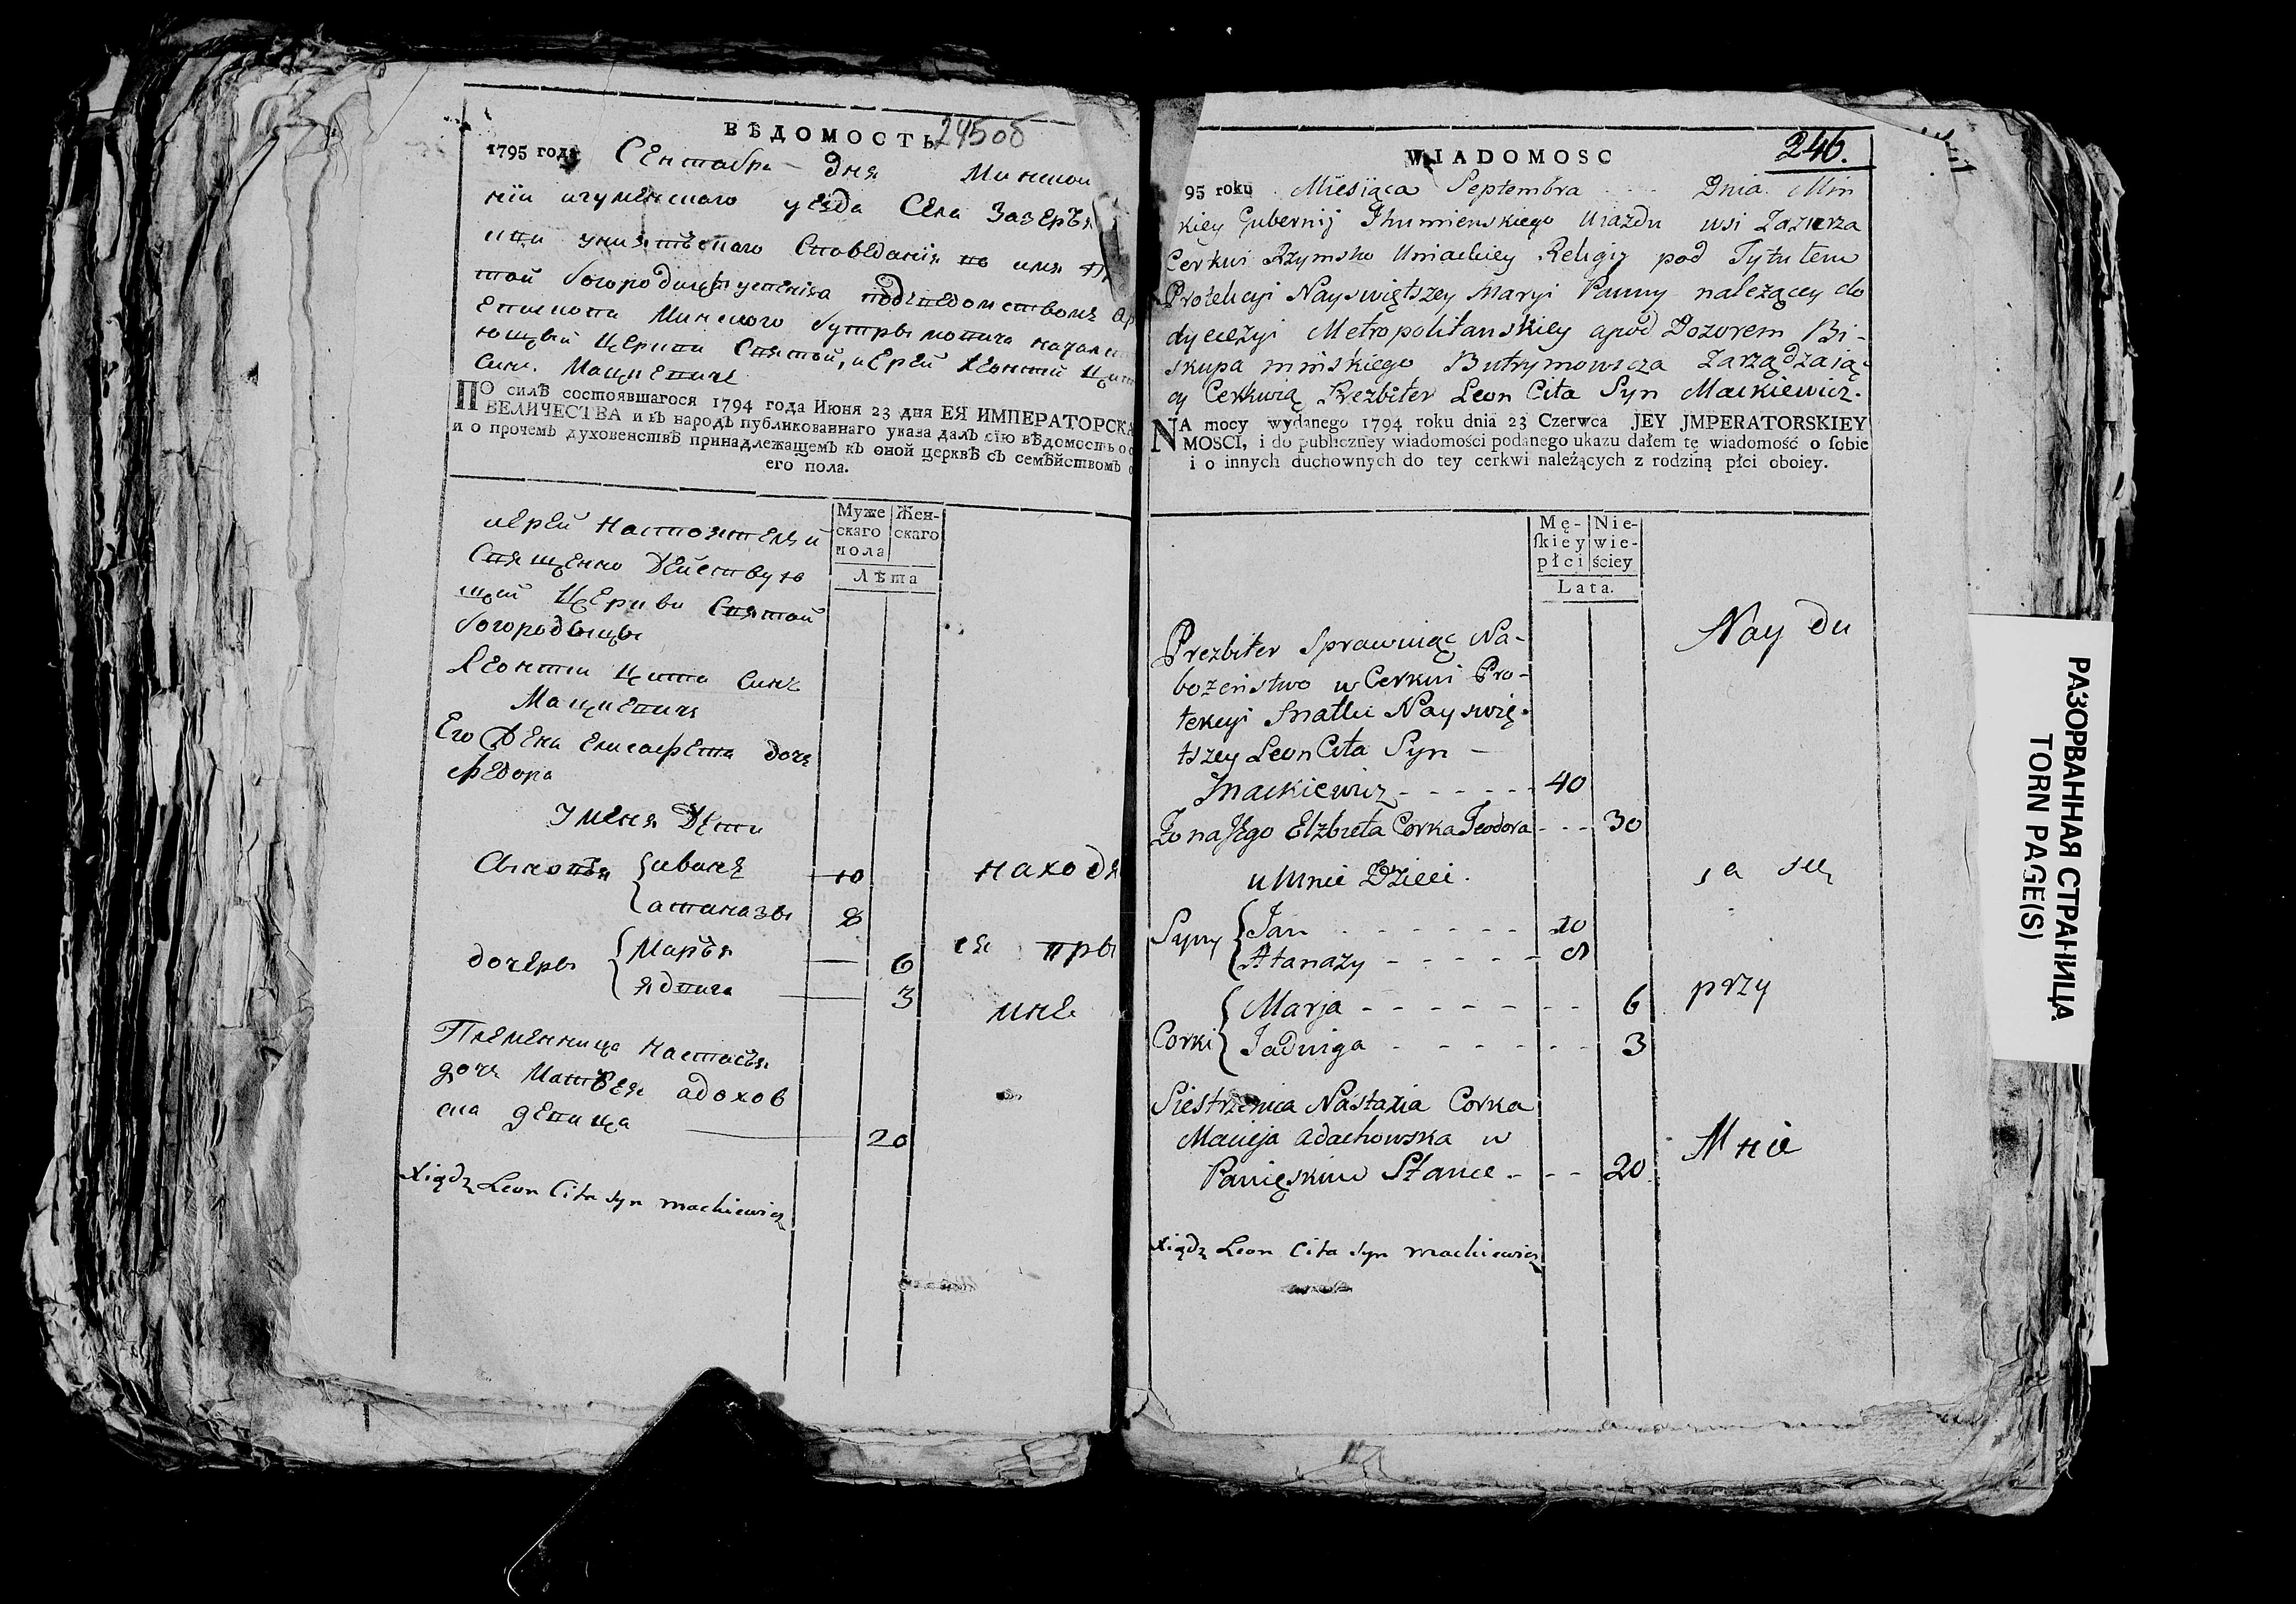 ВѢДОМОСТЬ 245об
1795 года Сентабра дня Минской
нїи игуменского уезда Села Зазерья
униятского
той богородицы успения под ведомством
Епископа Минского бутрымовича
ющый Церкви Святой, иерей Леонтий Цита
Син. Мацкевичь
ПО силѣ состоявшагося 1794 года Июня 23 дня ЕЯ ИМПЕРАТОРСКА
ВЕЛИЧЕСТВА и въ народъ публикованнаго указа далъ сїю вѣдомость о с
и о прочемъ духовенствѣ принадлежащемъ къ оной церквѣ съ семѣйствомъ о
его пола.
Муже скаго пола
Жен- скаго
Лѣта
иерей настоятель и
Священно Действую
щий Церкви Святой
богородыцы
Леонтии Цита Синъ
Мацкевичъ
Его Жена Елисафета дочь
Федора
У меня Дети
Сыновъя { иванъ 10
{ атаназы 8
дочеры { Маръя 6
{ ядвига 3
Племенница настасья
дочъ Матвея адохов
ска девица 20
находя
ся пры
мне
Xiądz Leon Cita syn mackiewicz
WIADOMOSC 246.
95 roku Miesiąca Septembra Dnia Min
kiey Gubernij Ihumienskiego Uiazdu wsi Zazierza
Cerkwi Rzymsko Uniackiey Religij pod Tytułem
Protekcyi Nayświętszey Maryi Panny należącey do
dyecezyi Metropolitanskiey apod Dozorem Bi-
skupa mińskiego Butrymowicza Zarządzaią-
cy Cerkwią Prezbiter Leon Cita Syn Mackiewicz.
NA mocy wydanego 1794 roku dnia 23 Czerwca JEY JMPERATORSKIEY
MOSCI, i do publiczney wiadomości podanego ukazu dałem tę wiadomość o sobie
i o innych duchownych do tey cerkwi należących z rodziną płci oboiey.
Mę- skiey płci
Nie- wie- ściey
Lata.
Prezbiter Sprawuiąc Na-
bożeństwo w Cerkwi Pro-
tekcyi Matki Nayświę-
tszey Leon Cita Syn
Mackiewicz 40
Żona Jego Elzbieta Corka Teodora 30
u Mnie Dzieci.
Syny { Jan 10
{ Atanazy 8
Corki { Marja 6
{ Jadwiga 3
Siestrzenica Nastazia Corka
Macieja adachowska w
Panięskim Stanie 20
Nay du
są się
przy
Mnie
Xiądz Leon Cita syn mackiewicz
РАЗОРВАННАЯ СТРАНИЦА
TORN PAGE(S)